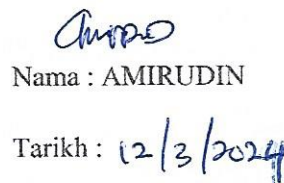 Nama : AMIRUDIN
Tarikh : 12/3/2024